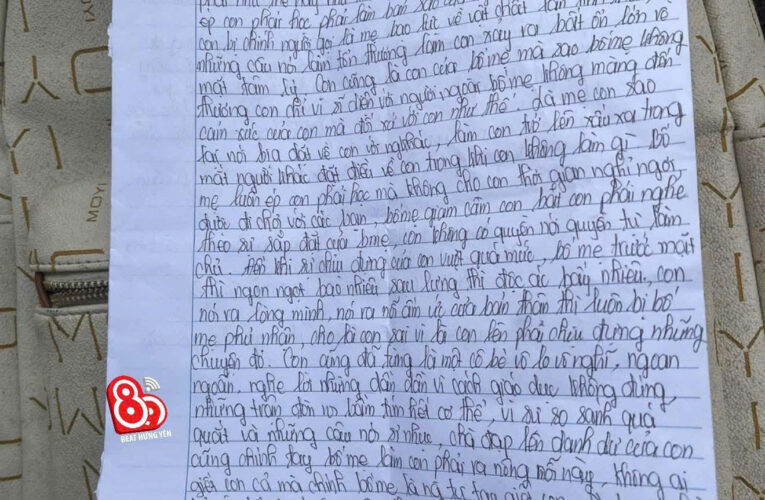 ép con phải học phải làm bản sao
con bị chính người gọi là mẹ bạo lực về vật chất lẫn tinh
những câu nói làm tổn thương làm con xảy ra bất ổn lớn về
mặt tâm lý. Con cũng là con của bố mẹ mà sao bố mẹ không
thương con chỉ vì sĩ diện với người ngoài bố mẹ không màng đến
cảm xúc của con mà đối xử với con như thế. Là mẹ con sao
lại nói bịa đặt về con với ng khác, làm con trở lên xấu xa trong
mắt người khác đặt điều về con trong khi con không làm gì. Bố
mẹ luôn ép con phải học mà không cho con thời gian nghỉ ngơi
được đi chơi với các bạn, bố mẹ giam cầm con bắt con phải nghe
theo sự sắp đặt của bmẹ, con không có quyền nói quyền tự làm
chủ. Đến khi sự chịu đựng của con vượt quá mức, bố mẹ trước mặt
thì ngon ngọt bao nhiêu sau lưng thì độc ác bấy nhiêu, con
nói ra lòng mình, nói ra nỗi ấm ức của bản thân thì luôn bị bố
mẹ phủ nhận, cho là con sai vì là con lên phải chịu đựng những
chuyện đó. Con cũng đã từng là một cô bé vô lo vô nghĩ, ngoan
ngoãn, nghe lời nhưng dần dần vì cách giáo dục không đúng,
những trận đòn roi bầm tím hết cơ thể, vì sự so sánh quá
quắt và những câu nói sỉ nhục, chà đạp lên danh dự của con
cũng chính tay bố mẹ làm con phải ra nông nỗi này, không ai
giết con cả mà chính bố mẹ là ng
8.9
BEAT HƯNG YÊN
MOYI